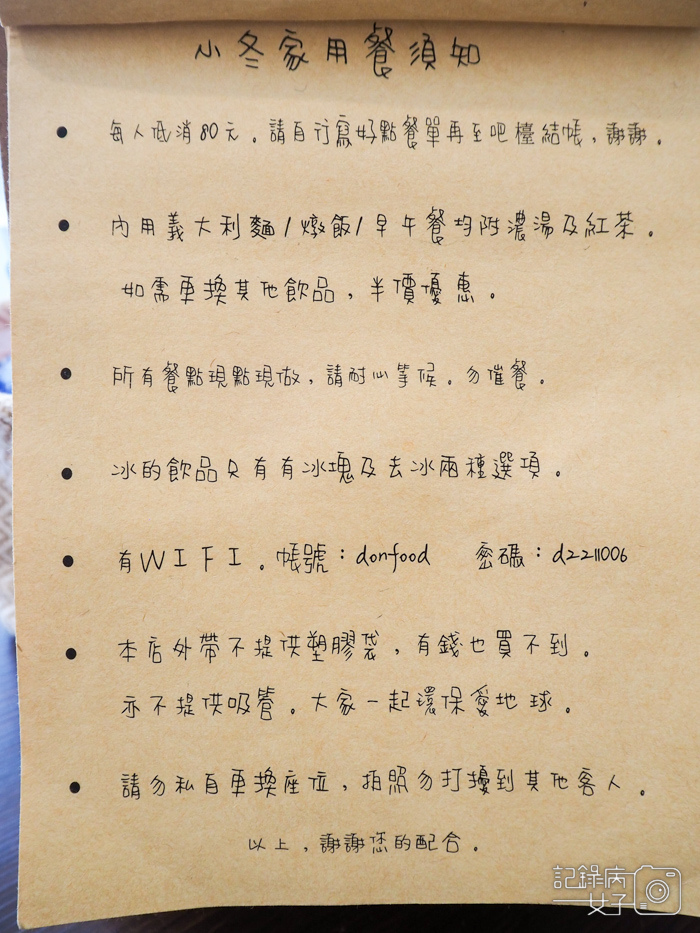 小冬家用餐須知
• 每人低消80元。請自行寫好點餐單再至吧檯結帳,謝謝。
• 內用義大利麵/燉飯/早午餐均附濃湯及紅茶。
如需更換其他飲品,半價優惠。
• 所有餐點現點現做,請耐心等候。勿催餐。
• 冰的飲品只有有冰塊及去冰兩種選項。
• 有WIFI。帳號:donfood 密碼:d2211006
• 本店外帶不提供塑膠袋,有錢也買不到。
亦不提供吸管。大家一起環保愛地球。
• 請勿私自更換座位,拍照勿打擾到其他客人。
以上,謝謝您的配合。
記錄病
女子